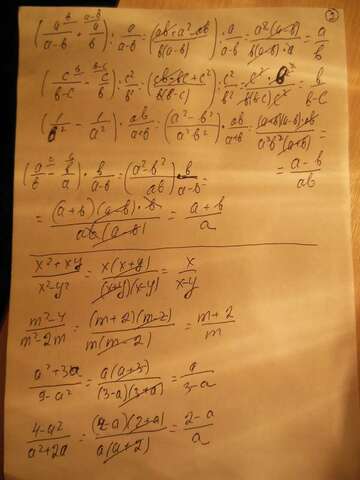 (a/(a-b) + a/b) : a/(a-b) = (ab + a² - ab)/(b(a-b)) : a/(a-b) = a²(a-b)/(b(a-b)·a) = a/b
(c/(b-c) + c/b) : c²/b² = (bc + c²)/(b(b-c)) : c²/b² = c²·b²/(b(b-c)c²) = b/(b-c)
(1/b² - 1/a²) · ab/(a+b) = (a²-b²)/(a²b²) · ab/(a+b) = (a+b)(a-b)ab/(a²b²(a+b)) =
(a/b - b/a) · b/(a-b) = (a²-b²)/(ab) · b/(a-b) =
= (a-b)/(ab)
= (a+b)(a-b)·b/(ab(a-b)) = (a+b)/a
(x²+xy)/(x²-y²) = x(x+y)/((x+y)(x-y)) = x/(x-y)
(m²-4)/(m²-2m) = (m+2)(m-2)/(m(m-2)) = (m+2)/m
(a²+3a)/(9-a²) = a(a+3)/((3-a)(3+a)) = a/(3-a)
(4-a²)/(a²+2a) = (2-a)(2+a)/(a(a+2)) = (2-a)/a